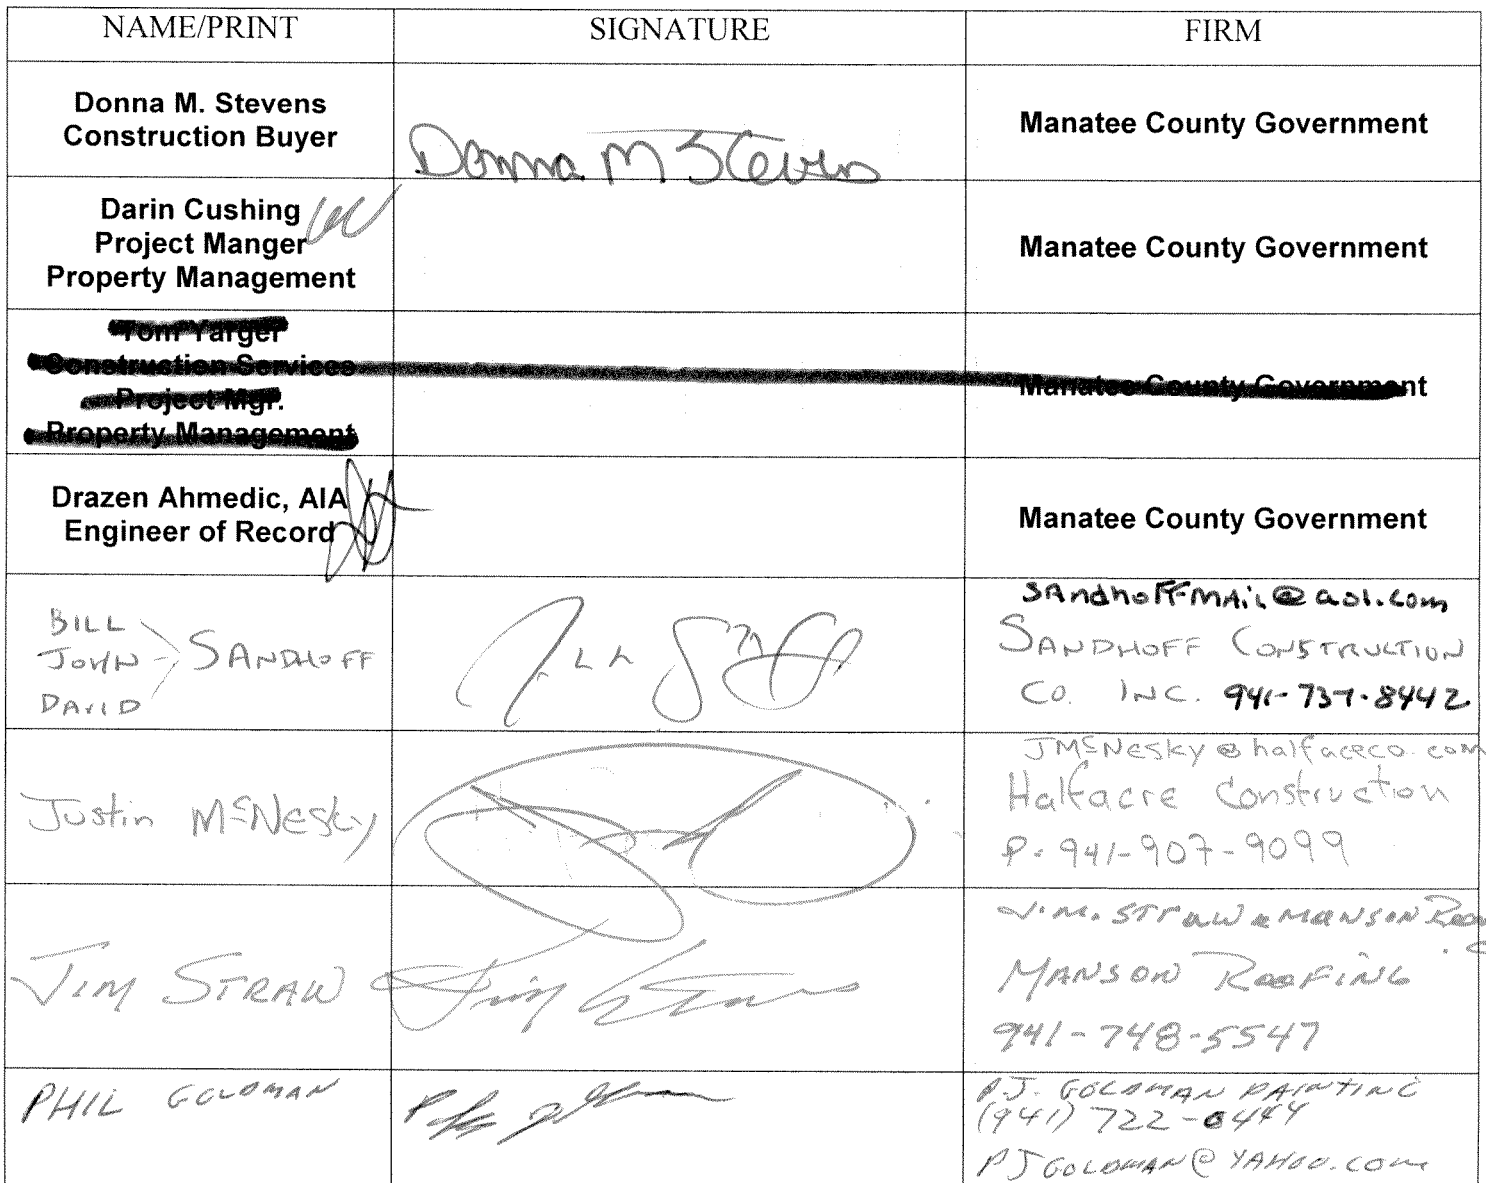 NAME/PRINT SIGNATURE FIRM
Donna M. Stevens
Construction Buyer
Donna M Stevens
Manatee County Government
Darin Cushing
Project Manger
Property Management
Manatee County Government
Tom Yarger
Construction Services
Project Mgr.
Property Management
Manatee County Government
Drazen Ahmedic, AIA
Engineer of Record
Manatee County Government
BILL
JOHN SANDHOFF
DAVID
SAndhoFFMAiL@aol.com
SANDHOFF CONSTRUCTION
CO. INC. 941-737-8442
Justin McNesky
JMcNesky@halfacreco.com
Halfacre Construction
P. 941-907-9099
JIM STRAW
Jim Straw
MANSON ROOFING
941-748-5547
PHIL GOLDMAN
P.J. GOLDMAN PAINTING
(941) 722-0444
PJGOLDMAN@YAHOO.COM